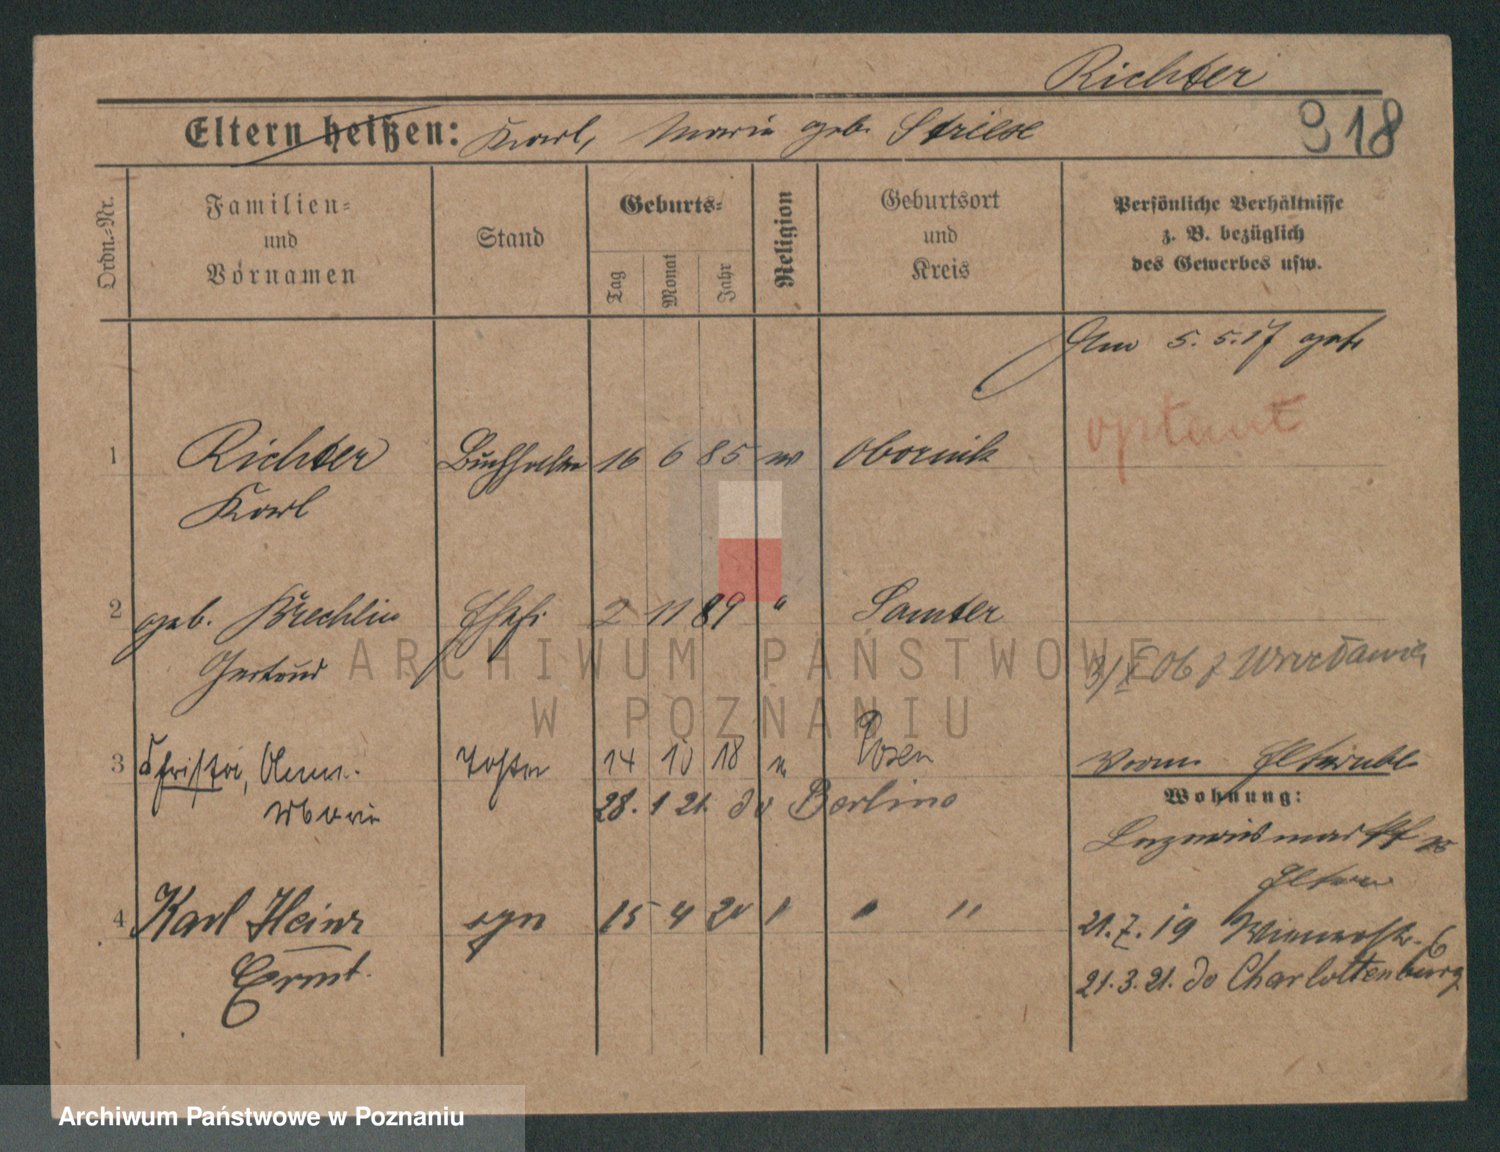 Richter
Eltern heißen: Karl, Maria geb. Striese
318
Ordn.-Nr.
Familien-
und
Vornamen
Stand
Geburts-
Tag
Monat
Jahr
Religion
Geburtsort
und
Kreis
Persönliche Verhältnisse
z. B. bezüglich
des Gewerbes usw.
Am 5. 5. 17 geh
optant
1 Richter Buchhalter 16 6 85 ev Obornik
Karl
2 geb. Krechlin Ehefr. 2 11 89 " Samter
Gertrud
3 Christa, Anna- Tochter 14 10 18 " Posen
Maria
28. 1 21. do Berlina
Wohnung:
Lazarusmarkt
Eltern
4 Karl Heinz 15 4 20 " " "
Ernst.
21. 7. 19 Wienerstr. 6
21. 3. 21. do Charlottenburg
ARCHIWUM PAŃSTWOWE
W POZNANIU
Archiwum Państwowe w Poznaniu